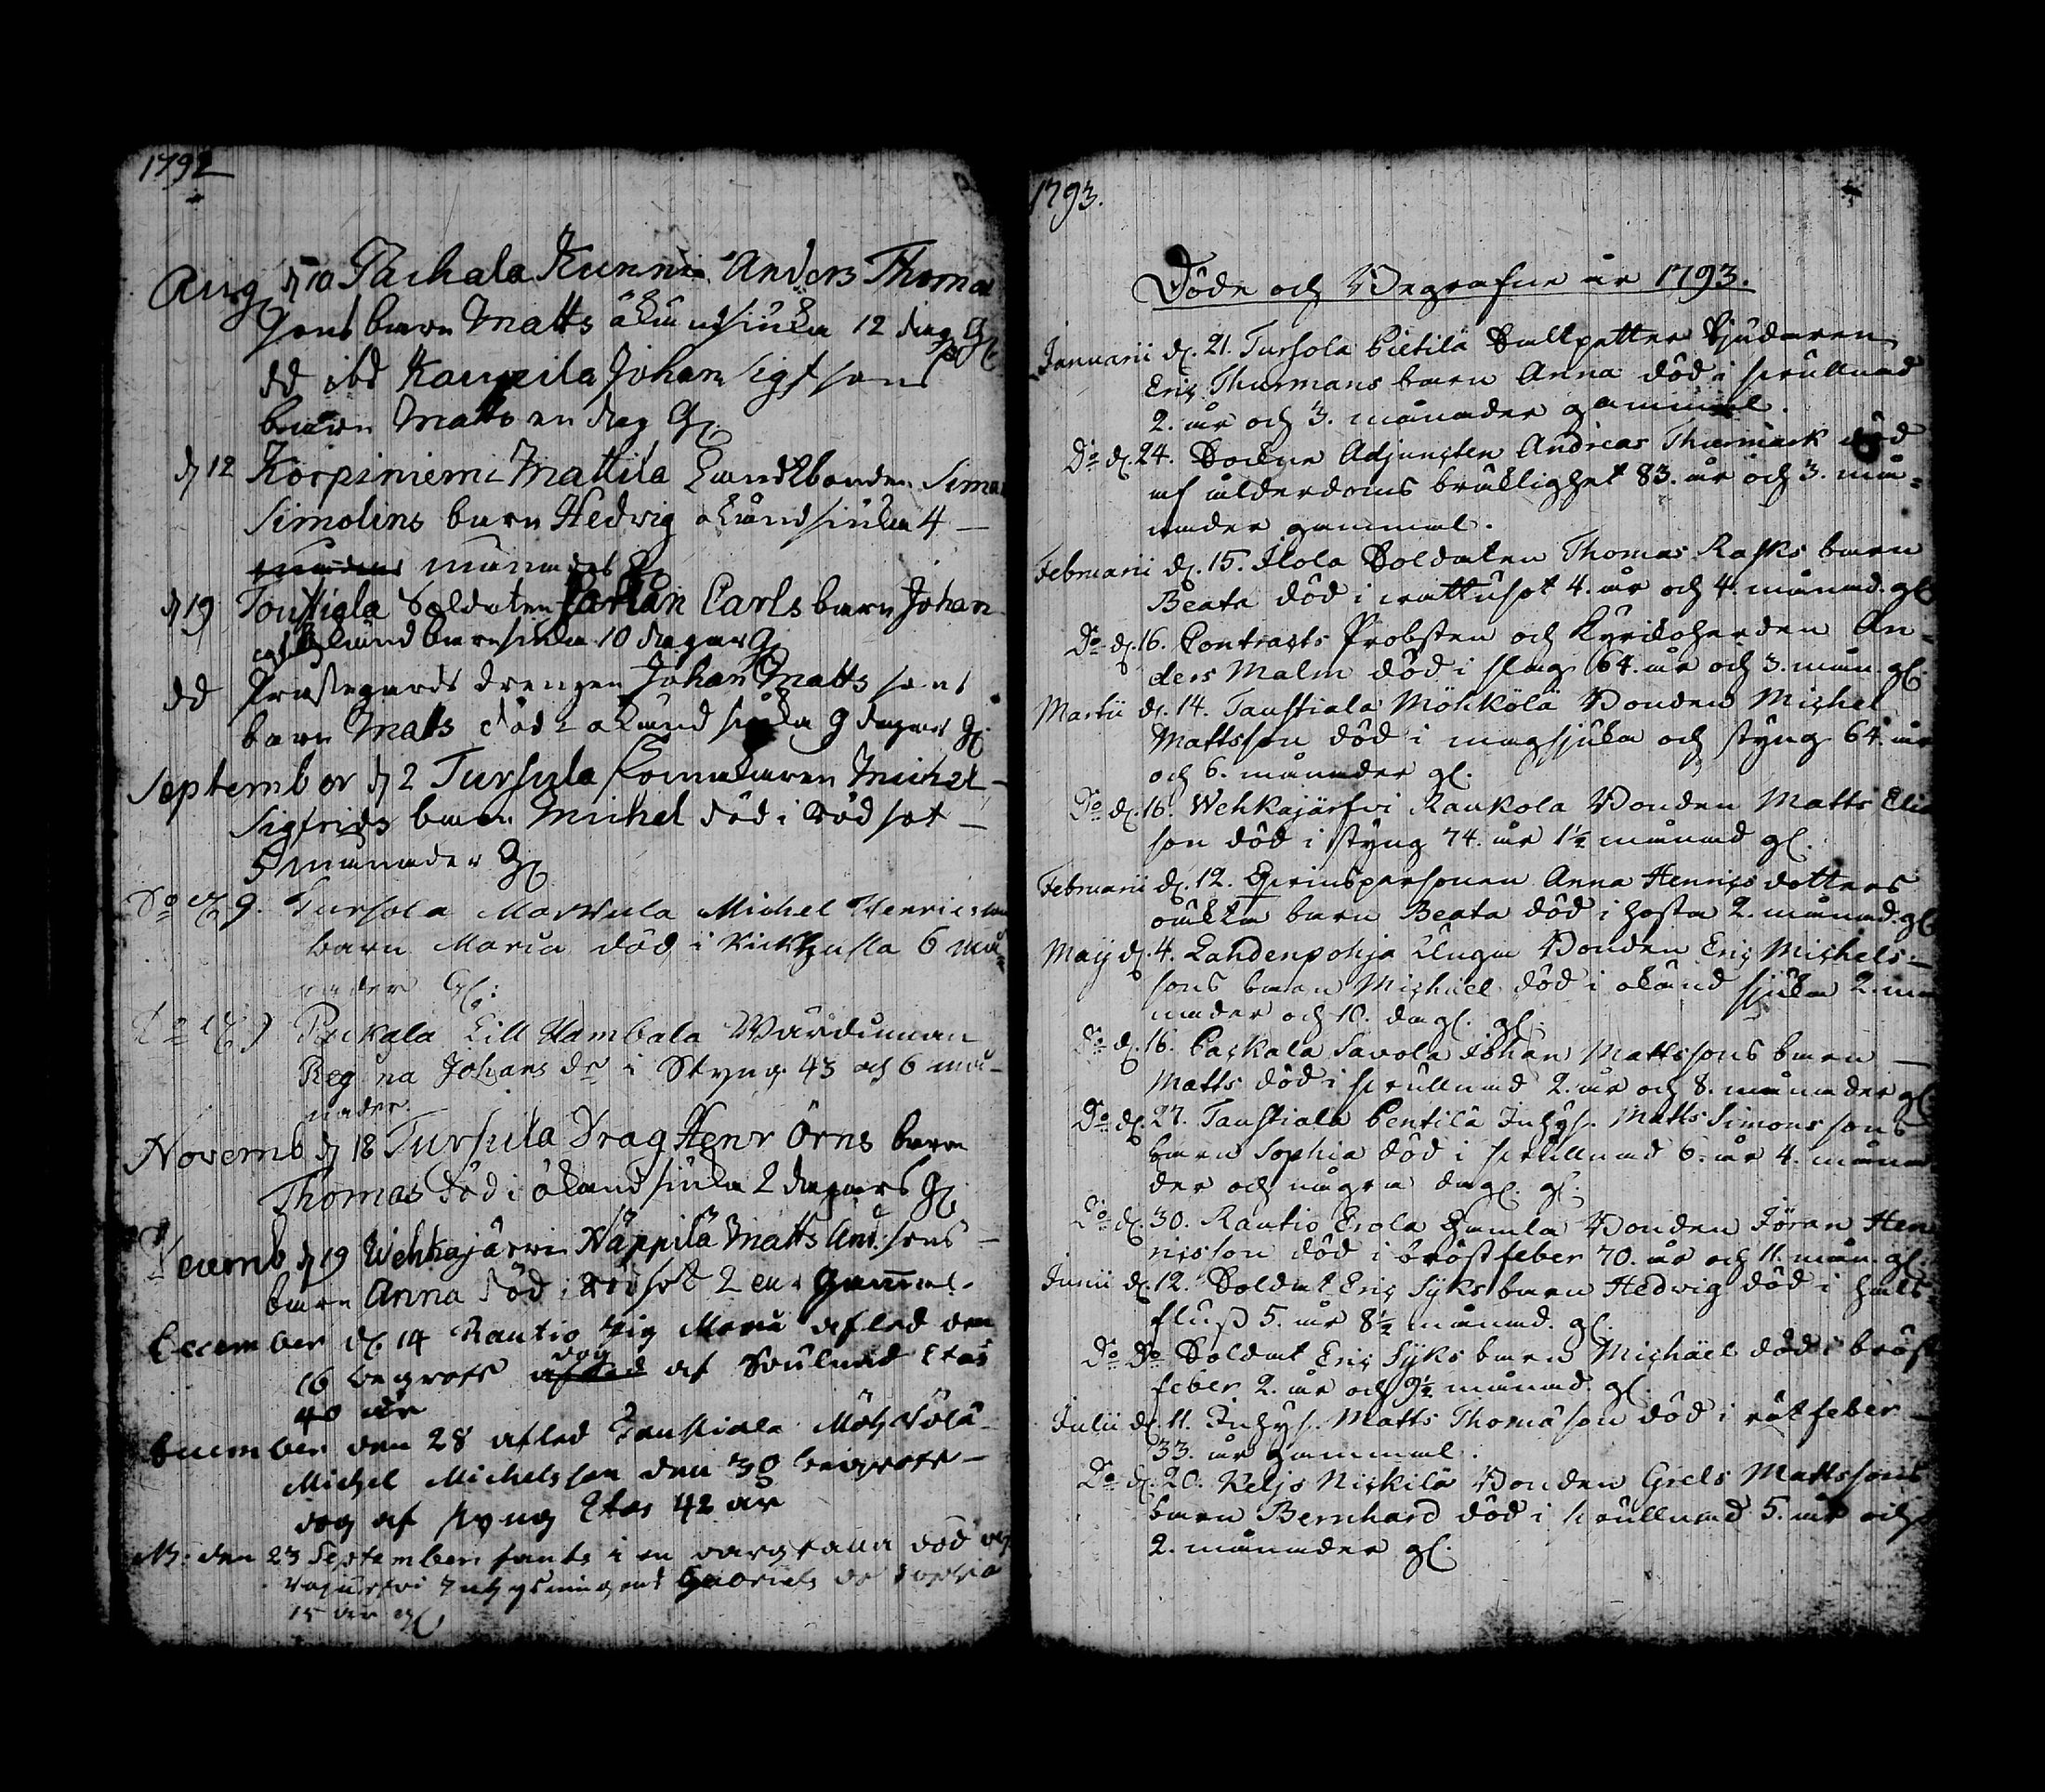 1792
Aug d 10 Pachala Kunni Anders Thoma
sons barn Matts okänd siuka 12 dag. Gl
dd ibd Kauppila Johan Sigfsons
barn Matts en dag Gl.
d 12 Korpiniemi Mattila Landbonden Simon
Simolins barn Hedvig okänd siuka 4 –
månader Gl
d 19 Toustiala Soldaten Carl Carls barn Johan
okänd barnsiuka 10 dagar Gl
dd Prästegårds drengen Johan Matts sons
barn Matts död i okänd siuka 9 dagar Gl.
September d 2 Tursula Michel –
Sigfrids barn Michel död i Rödsot –
5 månader Gl
Do d. 9. Tursola Marttula Michel Henricson
barn Maria död i Kickhusta 6 må=
nader Gl:
Do Pockala Lill Hambala
Regina Johans dr i Styng 43 och 6 må=
nader.
Novemb d 18 Tursula Drag Henr Örns barn
Thomas död i okänd siuka 2 dagars Gl
Decemb d 19 Wehkajärvi Näppilä Matts And. sons –
barn Anna död i Rödsot 2 Gammal.
December d. 14 Rautio Pig Maria afled den
16 begrofs dog af Etas
40 år
December den 28 afled Taustiala Möhkölä
Michel Michelsson den 30 begrofs –
dog af styng Etas 42 år
NB: den 23 September fants i en död
Gabriels dr Sophia
15 år gl
1793.
Döde och Begrafne år 1793.
Januarii d. 21. Tursola Pietilä Sallpetter Sjudaren
Eric Thurmans barn Anna död i skrullnad
2. år och 3. månader gammal.
Do d. 24. Sockne Adjuncten Andreas Thurmarck död
af ålderdoms bräcklighet 83. år och 3. må=
nader gammal.
Februarii d. 15. Ilola Soldaten Thomas Rasks barn
Beata död i wattusot 4. år och 4. månad. gl.
Do d. 16. Contracts Probsten och Kyrckoherden An=
ders Malm död i slag 64. år och 3. mån. gl.
Martii d. 14. Taustiala Möhkölä Bonden Michel
Mattsson död i magsjuka och styng 64. år
och 6. månader gl.
Do d. 16. Wehkajärfvi Raukola Bonden Matts Elia
son död i styng 74. år 1½ månad gl.
Februarii d. 12. Qvinspersonen Anna Henricsdotters
oäckta barn Beata död i hosta 2. månad. gl.
Maij d. 4. Lahdenpohja Unga Bonden Eric Michels –
sons barn Michael död i okänd sjuka 2. må
nader och 10. dag. gl.
Do d. 16. Packala Savola Johan Mattssons barn –
Matts död i skrullnad 2. år och 8. månader gl.
Do d. 27. Taustiala Pentilä Inhys. Matts Simonssons
barn Sophia död i skrullnad 6. år 4. måna
der och några dag. gl.
Do d. 30. Rautio Erola Gamla Bonden Jöran Hen
ricsson död i bröstfeber 70. år och 11. mån. gl.
Junii d. 12. Soldat Eric Syks barn Hedvig död i hals=
fluß 5. år 8½ månad. gl.
Do Do Soldat Eric Syks barn Michäel död i bröst
feber 2. år och 9½ månad. gl.
Julii d. 11. Inhys. Matts Thomason död i rötfeber –
33. år gammal.
Do d. 20. Keljo Nickilä Bonden Grels Mattssons
barn Bernhard död i skrullnad 5. år och
2. månader gl.